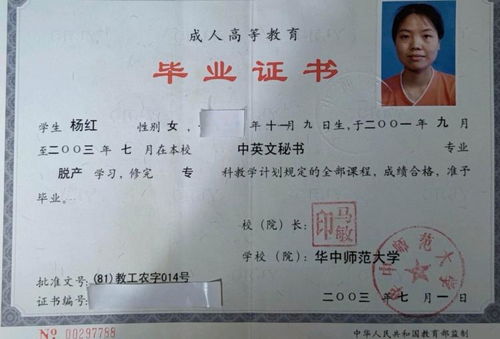 成人高等教育
毕业证书
学生 杨红 性别 女， 年 十一月 九 日生，于二〇〇一年 九 月
至二〇〇三年 七 月在本校 中英文秘书 专业
脱产 学习，修完 专 科教学计划规定的全部课程，成绩合格，准予
毕业。
校（院）长： 马敏印
学校（院）： 华中师范大学
华中师范大学
批准文号： (81)教工农字014号
证书编号：
二〇〇三年 七 月 一 日
No 00297788
中华人民共和国教育部监制